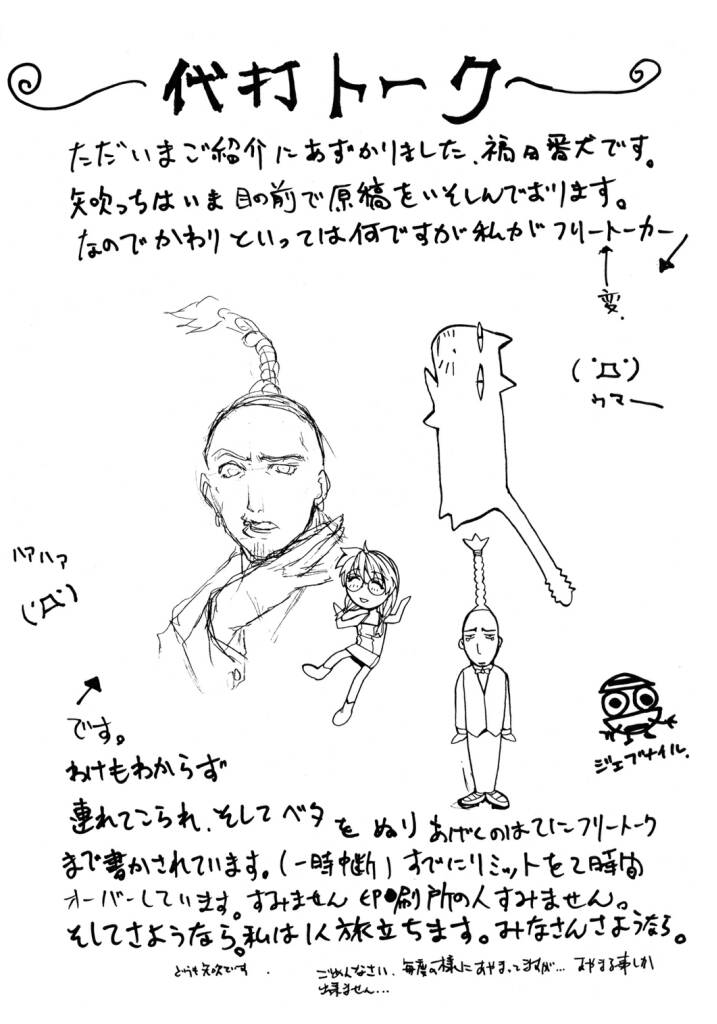 代打トーク
ただいまご紹介にあずかりました、福日番犬です。
矢吹っちはいま目の前で原稿をいそしんでおります。
なのでかわりといっては何ですが私がフリートーカー
変.
( ﾟДﾟ)
ウマー
ハァハァ
(ﾟДﾟ)
ジュブナイル.
です。
わけもわからず
連れてこられ、そしてベタをぬりあげくのはてにフリートーク
まで書かされています。(一時中断) すでにリミットを2時間
オーバーしています。すみません印刷所の人すみません。
そしてさようなら。私は1人旅立ちます。みなさんさようなら。
どうも矢吹です.
ごめんなさい.毎度の様にあやまってますが…あやまる事しか
出来ません…